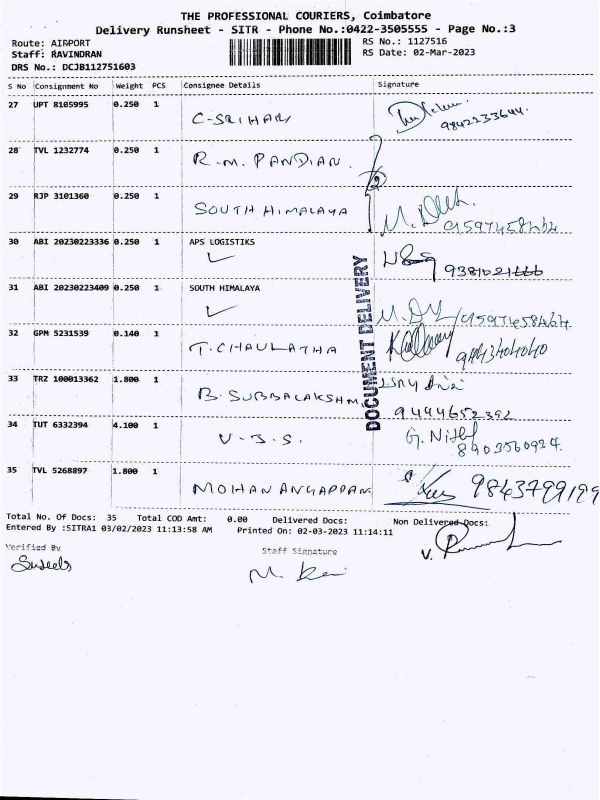 THE PROFESSIONAL COURIERS, Coimbatore
Delivery Runsheet - SITR - Phone No.:0422-3505555 - Page No.:3
Route: AIRPORT
RS No.: 1127516
Staff: RAVINDRAN
RS Date: 02-Mar-2023
DRS No.: DCJB112751603
S No Consignment No Weight PCS Consignee Details Signature
27 UPT 8105995 0.250 1 C-SRIHARI 9842233644.
28 TVL 1232774 0.250 1 R.M. PANDIAN.
29 RJP 3101360 0.250 1 SOUTH HIMALAYA
30 ABI 20230223336 0.250 1 APS LOGISTIKS
31 ABI 20230223409 0.250 1 SOUTH HIMALAYA
32 GPM 5231539 0.140 1 T. CHAULATHA
33 TRZ 100013362 1.800 1 B. SUBBALAKSHMI
9444652392
34 TUT 6332394 4.100 1 V-J.S.
8903560934.
35 TVL 5268897 1.800 1 MOHAN ANGAPPAN
DOCUMENT DELIVERY
Total No. Of Docs: 35 Total COD Amt: 0.00 Delivered Docs: Non Delivered Docs:
Entered By :SITRA1 03/02/2023 11:13:58 AM Printed On: 02-03-2023 11:14:11
Verified By
Staff Signature